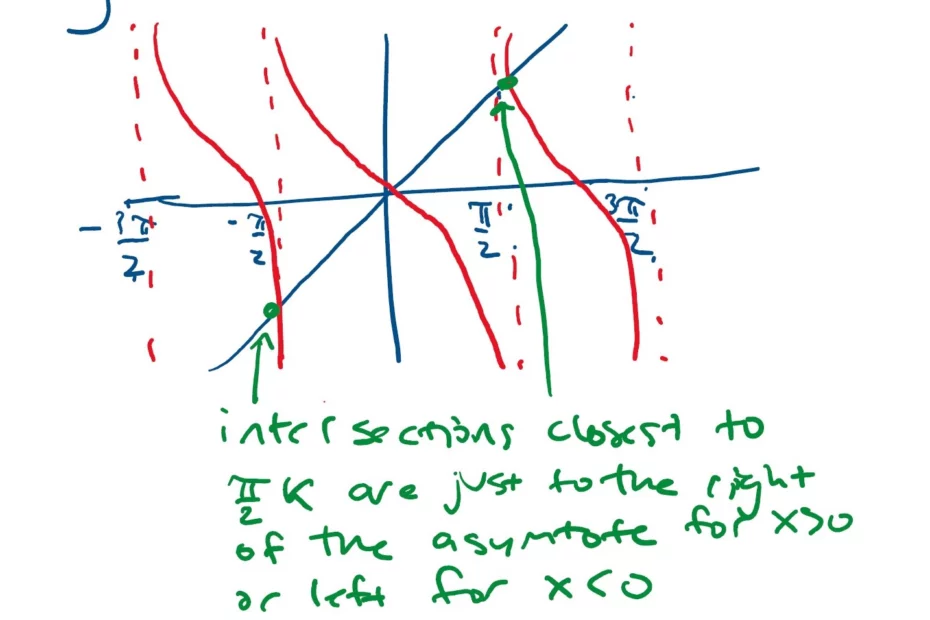 - 3π/2
- π/2
π/2
3π/2
intersections closest to
π/2 K are just to the right
of the asymtote for x>0
or left for x<0